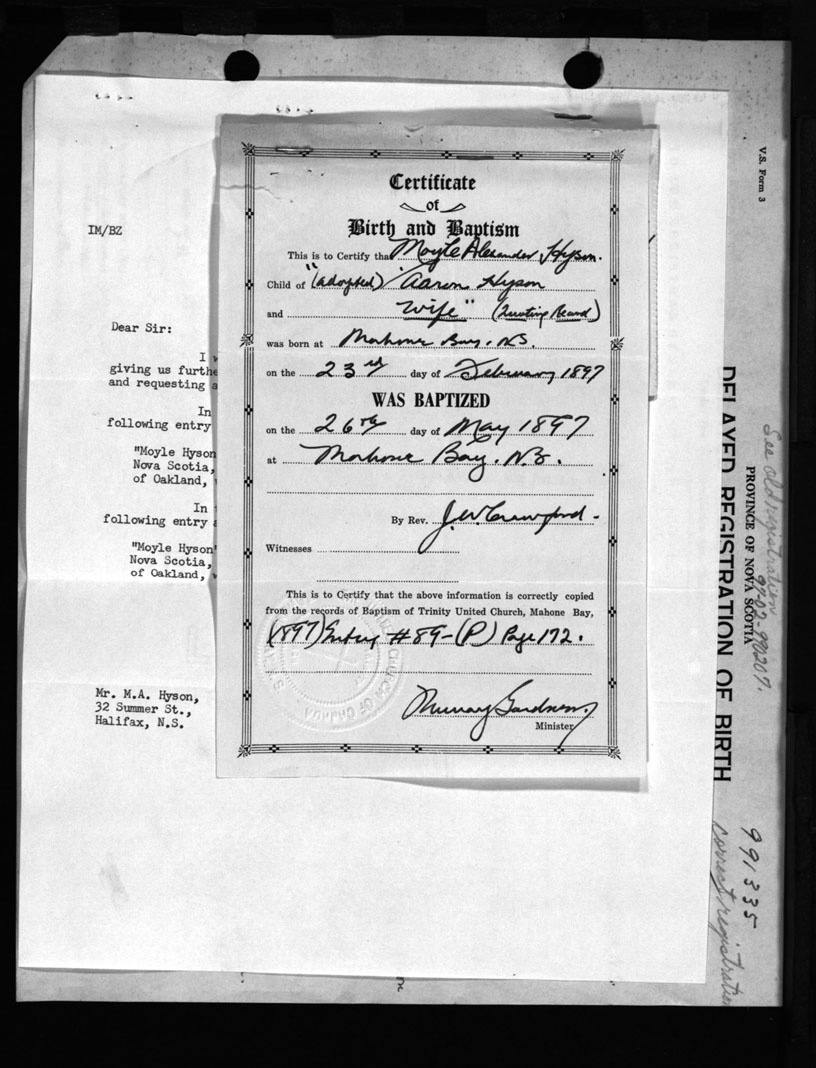 IM/BZ
Dear Sir:
I w
giving us furthe
and requesting a
In
following entry
"Moyle Hyson
Nova Scotia,
of Oakland,
In
following entry a
"Moyle Hyson"
Nova Scotia,
of Oakland,
Mr. M.A. Hyson,
32 Summer St.,
Halifax, N.S.
Certificate
of
Birth and Baptism
This is to Certify that Moyle Alexander Hyson.
Child of "(adopted) Aaron Hyson
and Wife" (Quoting Record)
was born at Mahone Bay, N.S.
on the 23rd day of February 1897
WAS BAPTIZED
on the 26th day of May 1897
at Mahone Bay, N.S.
By Rev. J.W. Crawford.
Witnesses
This is to Certify that the above information is correctly copied
from the records of Baptism of Trinity United Church, Mahone Bay,
(1897) Entry #89-(P) Page 172.
Murray Gardner
Minister
V.S. Form 3
DELAYED REGISTRATION OF BIRTH
PROVINCE OF NOVA SCOTIA
See old registration
97-02-990207.
991335
correct registration